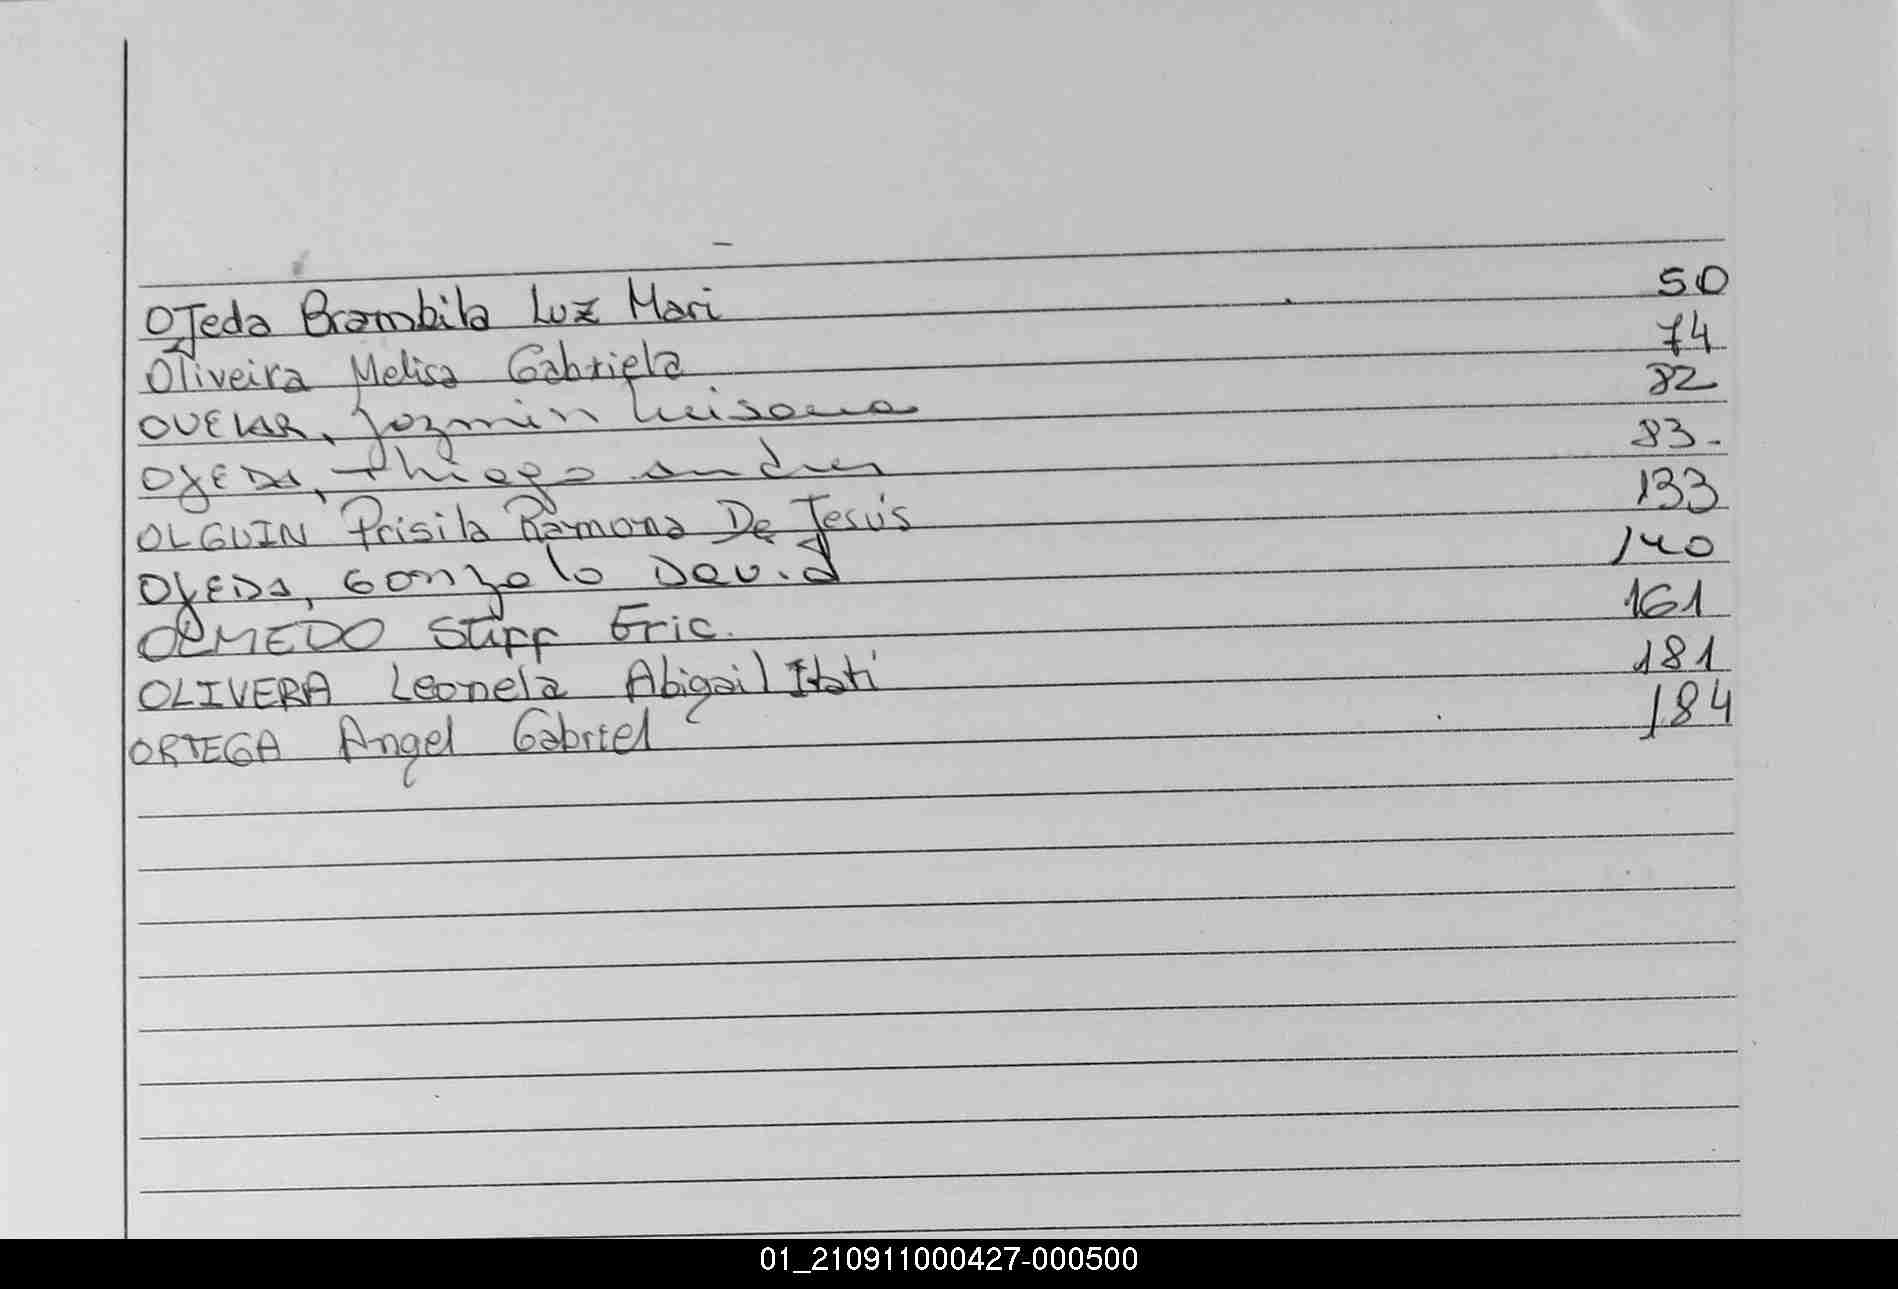 OJeda Brambila Luz Mari 50
Oliveira Melisa Gabriela 74
OVELAR, Jazmin Luisana 82
OJEDA, Thiago andres 83.
OLGUIN Prisila Ramona De Jesús 133
OJEDA, Gonzalo David 140
OLMEDO Stiff Eric. 161
OLIVERA Leonela Abigail Itatí 181
ORTEGA Angel Gabriel 184
01_210911000427-000500